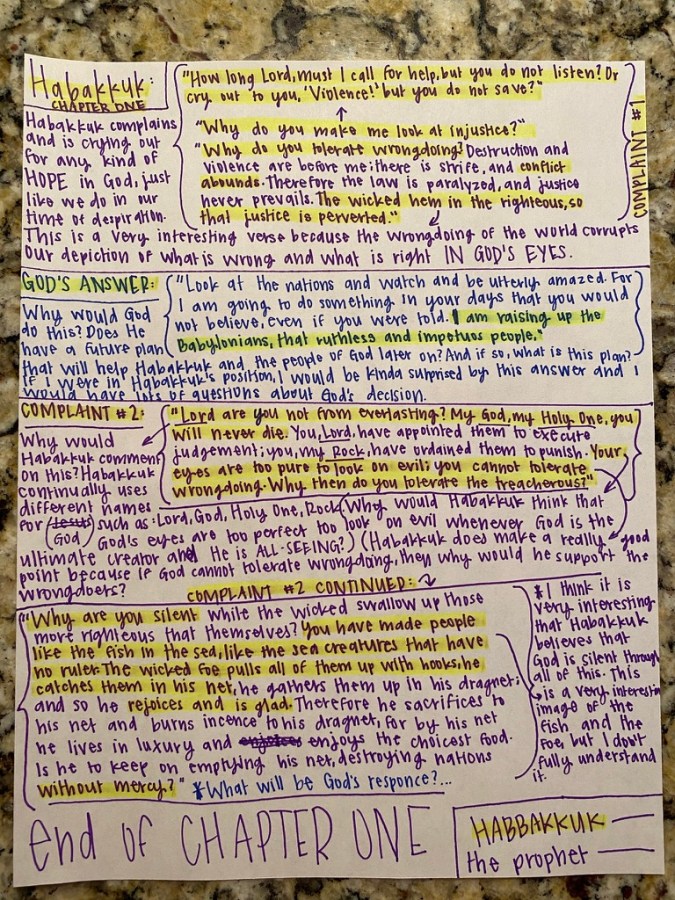 Habakkuk:
CHAPTER ONE
Habakkuk complains
and is crying out
for any kind of
HOPE in God, just
like we do in our
time of despiration.
"How long Lord, must I call for help, but you do not listen? Or
cry out to you, 'Violence!' but you do not save?"
"Why do you make me look at injustice?"
"Why do you tolerate wrongdoing? Destruction and
violence are before me; there is strife, and conflict
abounds. Therefore the law is paralyzed, and justice
never prevails. The wicked hem in the righteous, so
that justice is perverted."
COMPLAINT #1
This is a very interesting verse because the wrongdoing of the world corrupts
our depiction of what is wrong and what is right IN GOD'S EYES.
GOD'S ANSWER:
"Look at the nations and watch and be utterly amazed. For
I am going to do something in your days that you would
not believe, even if you were told. I am raising up the
Babylonians, that ruthless and impetuos people."
Why would God
do this? Does He
have a future plan
that will help Habakkuk and the people of God later on? And if so, what is this plan?
If I were in Habakkuk's position, I would be kinda suprised by this answer and I
would have lots of questions about God's decision.
COMPLAINT #2:
"Lord are you not from everlasting? My God, my Holy One, you
will never die. You, Lord, have appointed them to execute
judgement; you, my Rock, have ordained them to punish. Your
eyes are too pure to look on evil; you cannot tolerate
wrongdoing. Why then do you tolerate the treacherous?"
Why would
Habakkuk comment
on this? Habakkuk
continually uses
different names
for Jesus such as: Lord, God, Holy One, Rock. (Why would Habakkuk think that
(God) God's eyes are too perfect too look on evil whenever God is the
ultimate creator and He is ALL-SEEING?) (Habakkuk does make a really good
point because if God cannot tolerate wrongdoing, then why would he support the
wrongdoers?
COMPLAINT #2 CONTINUED:
"Why are you silent while the wicked swallow up those
more righteous that themselves? You have made people
like the fish in the sea, like the sea creatures that have
no ruler. The wicked foe pulls all of them up with hooks, he
catches them in his net, he gathers them up in his dragnet;
and so he rejoices and is glad. Therefore he sacrifices to
his net and burns incence to his dragnet, for by his net
he lives in luxury and enjoys the choicest food.
Is he to keep on emptying his net, destroying nations
without mercy?" *What will be God's responce?...
*I think it is
very interesting
that Habakkuk
believes that
God is silent through
all of this. This
is a very interesting
image of the
fish and the
foe, but I don't
fully understand
it.
end of CHAPTER ONE
HABBAKKUK
the prophet